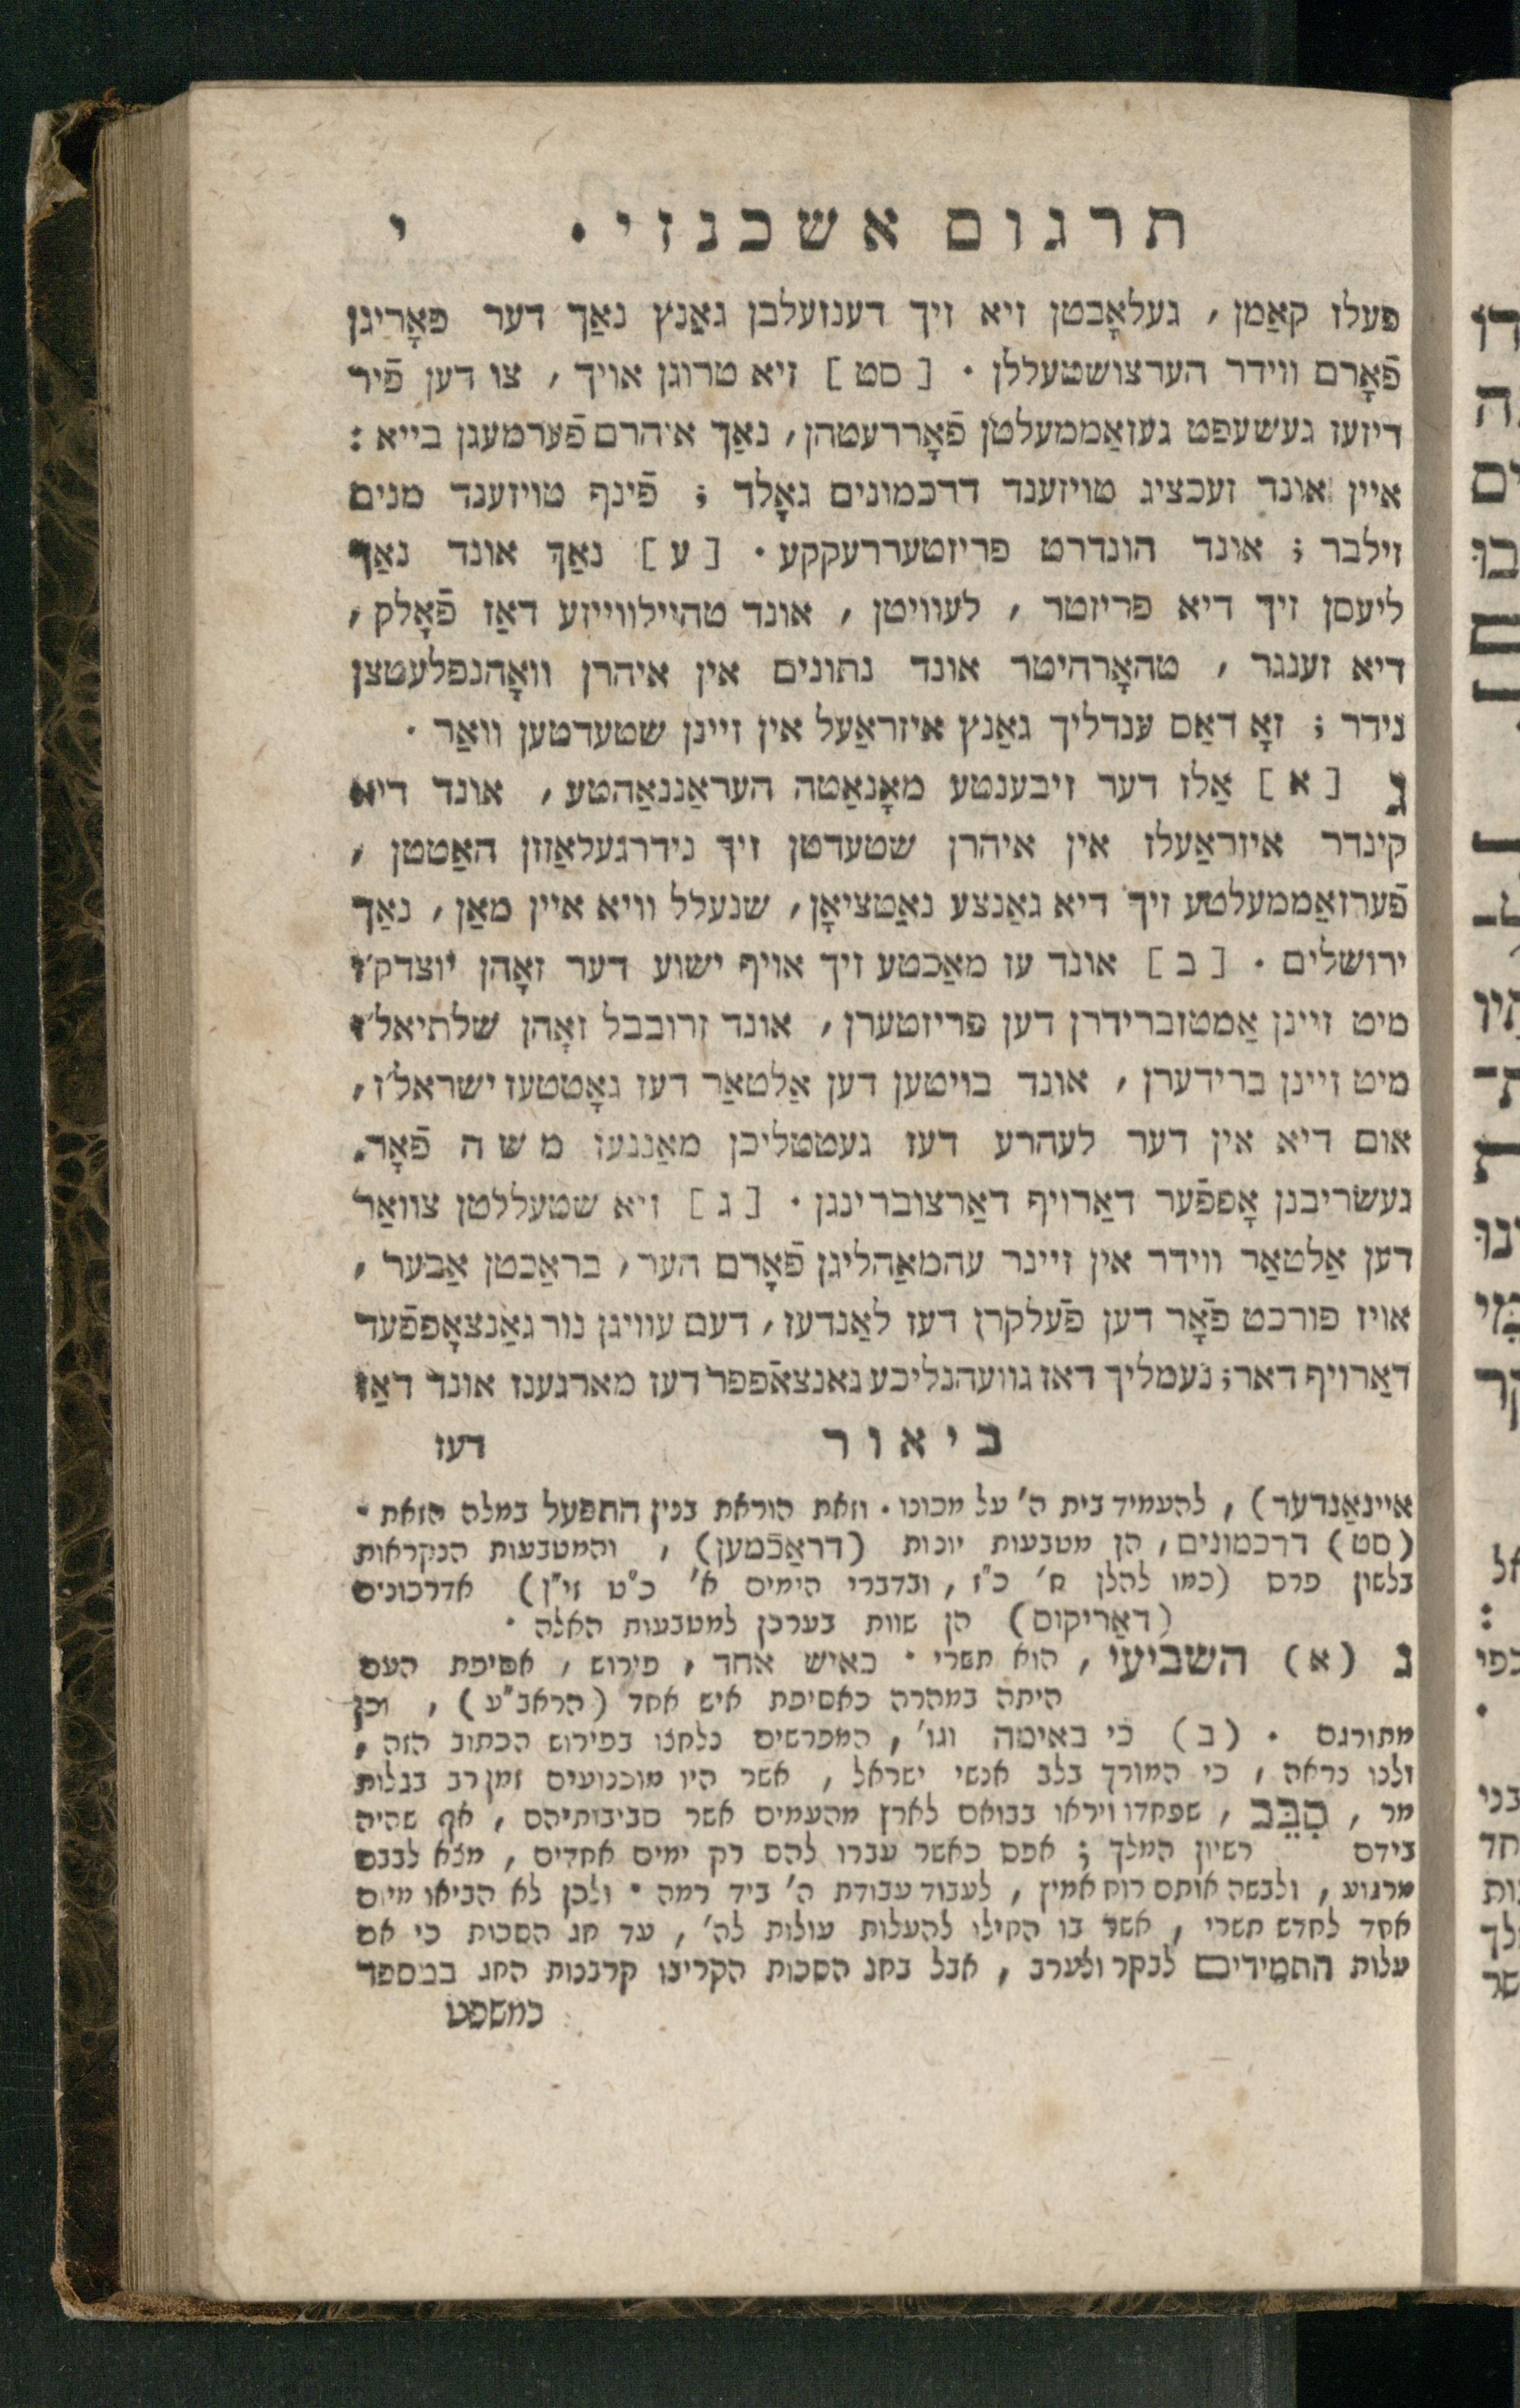 תרגום אשכנזי. י
פעלז קאַמן, געלאָבטן זיא זיך דענזעלבן גאַנץ נאַך דער פאָריגן
פֿאָרם ווידר הערצושטעללן. [סט] זיא טרוגן אויך, צו דען פֿיר
דיזעז געשעפט געזאַממעלטן פֿאָררעטהן, נאַך איהרם פֿערמעגן בייא:
איין אונד זעכציג טויזענד דרכמונים גאָלד; פֿינף טויזענד מנים
זילבר; אונד הונדרט פריזטעררעקקע. [ע] נאַך אונד נאַך
ליעסן זיך דיא פריזטר, לעוויטן, אונד טהיילווייזע דאַז פֿאָלק,
דיא זענגר, טהאָרהיטר אונד נתונים אין איהרן וואָהנפלעטצן
נידר; זאָ דאַס ענדליך גאַנץ איזראַעל אין זיינן שטעדטען וואַר.
ג [א] אַלז דער זיבענטע מאָנאַטה העראַננאַהטע, אונד דיא
קינדר איזראַעלז אין איהרן שטעדטן זיך נידרגעלאַזזן האַטטן,
פֿערזאַממעלטע זיך דיא גאַנצע נאַטציאָן, שנעלל וויא איין מאַן, נאַך
ירושלים. [ב] אונד עז מאַכטע זיך אויף ישוע דער זאָהן יוצדק'ז
מיט זיינן אַמטזברידרן דען פריזטערן, אונד זרובבל זאָהן שלתיאל'ז
מיט זיינן ברידערן, אונד בויטען דען אַלטאַר דעז גאָטטעז ישראל'ז,
אום דיא אין דער לעהרע דעז געטטליכן מאַננעז משה פֿאָר.
געשריבנן אָפפֿער דאַרויף דאַרצוברינגן. [ג] זיא שטעללטן צוואַר
דען אַלטאַר ווידר אין זיינר עהמאַהליגן פֿאָרם הער, בראַכטן אַבער,
אויז פורכט פֿאָר דען פֿעלקרן דעז לאַנדעז, דעם עוויגן נור גאַנצאָפפֿער
דאַרויף דאר; נעמליך דאז גוועהנליכע גאנצאפֿפר דעז מארגענז אונד דאַז
ביאור דעז
איינאַנדער), להעמיד בית ה' על מכונו. וזאת הוראת בנין התפעל במלה הזאת.
(סט) דרכמונים, הן מטבעות יונות (דראַכמען), והמטבעות הנקראות
בלשון פרס (כמו להלן ח' כ"ז, ובדברי הימים א' כ"ט זי"ן) אדרכונים
(דאַריקוס) הן שוות בערכן למטבעות האלה.
ג (א) השביעי, הוא תשרי. כאיש אחד, פירוש, אסיפת העם
היתה במהרה כאסיפת איש אחד (הראב"ע), וכן
מתורגם. (ב) כי באימה וגו', המפרשים נלחצו בפירוש הכתוב הזה,
ולנו נראה, כי המורך בלב אנשי ישראל, אשר היו מוכנועים זמן רב בגלות
מר, סִבֵּב, שפחדו ויראו בבואם לארץ מהעמים אשר סביבותיהם, אף שהיה
בידם רשיון המלך; אפס כאשר עברו להם רק ימים אחדים, מצא לבבם
מרגוע, ולבשה אותם רוח אמיץ, לעבוד עבודת ה' ביד רמה. ולכן לא הביאו מיום
אחד לחדש תשרי, אשר בו החילו להעלות עולות לה', עד חג הסכות כי אם
עלות התמידים לבקר ולערב, אבל בחג הסכות הקריבו קרבנות החג במספר
כמשפט